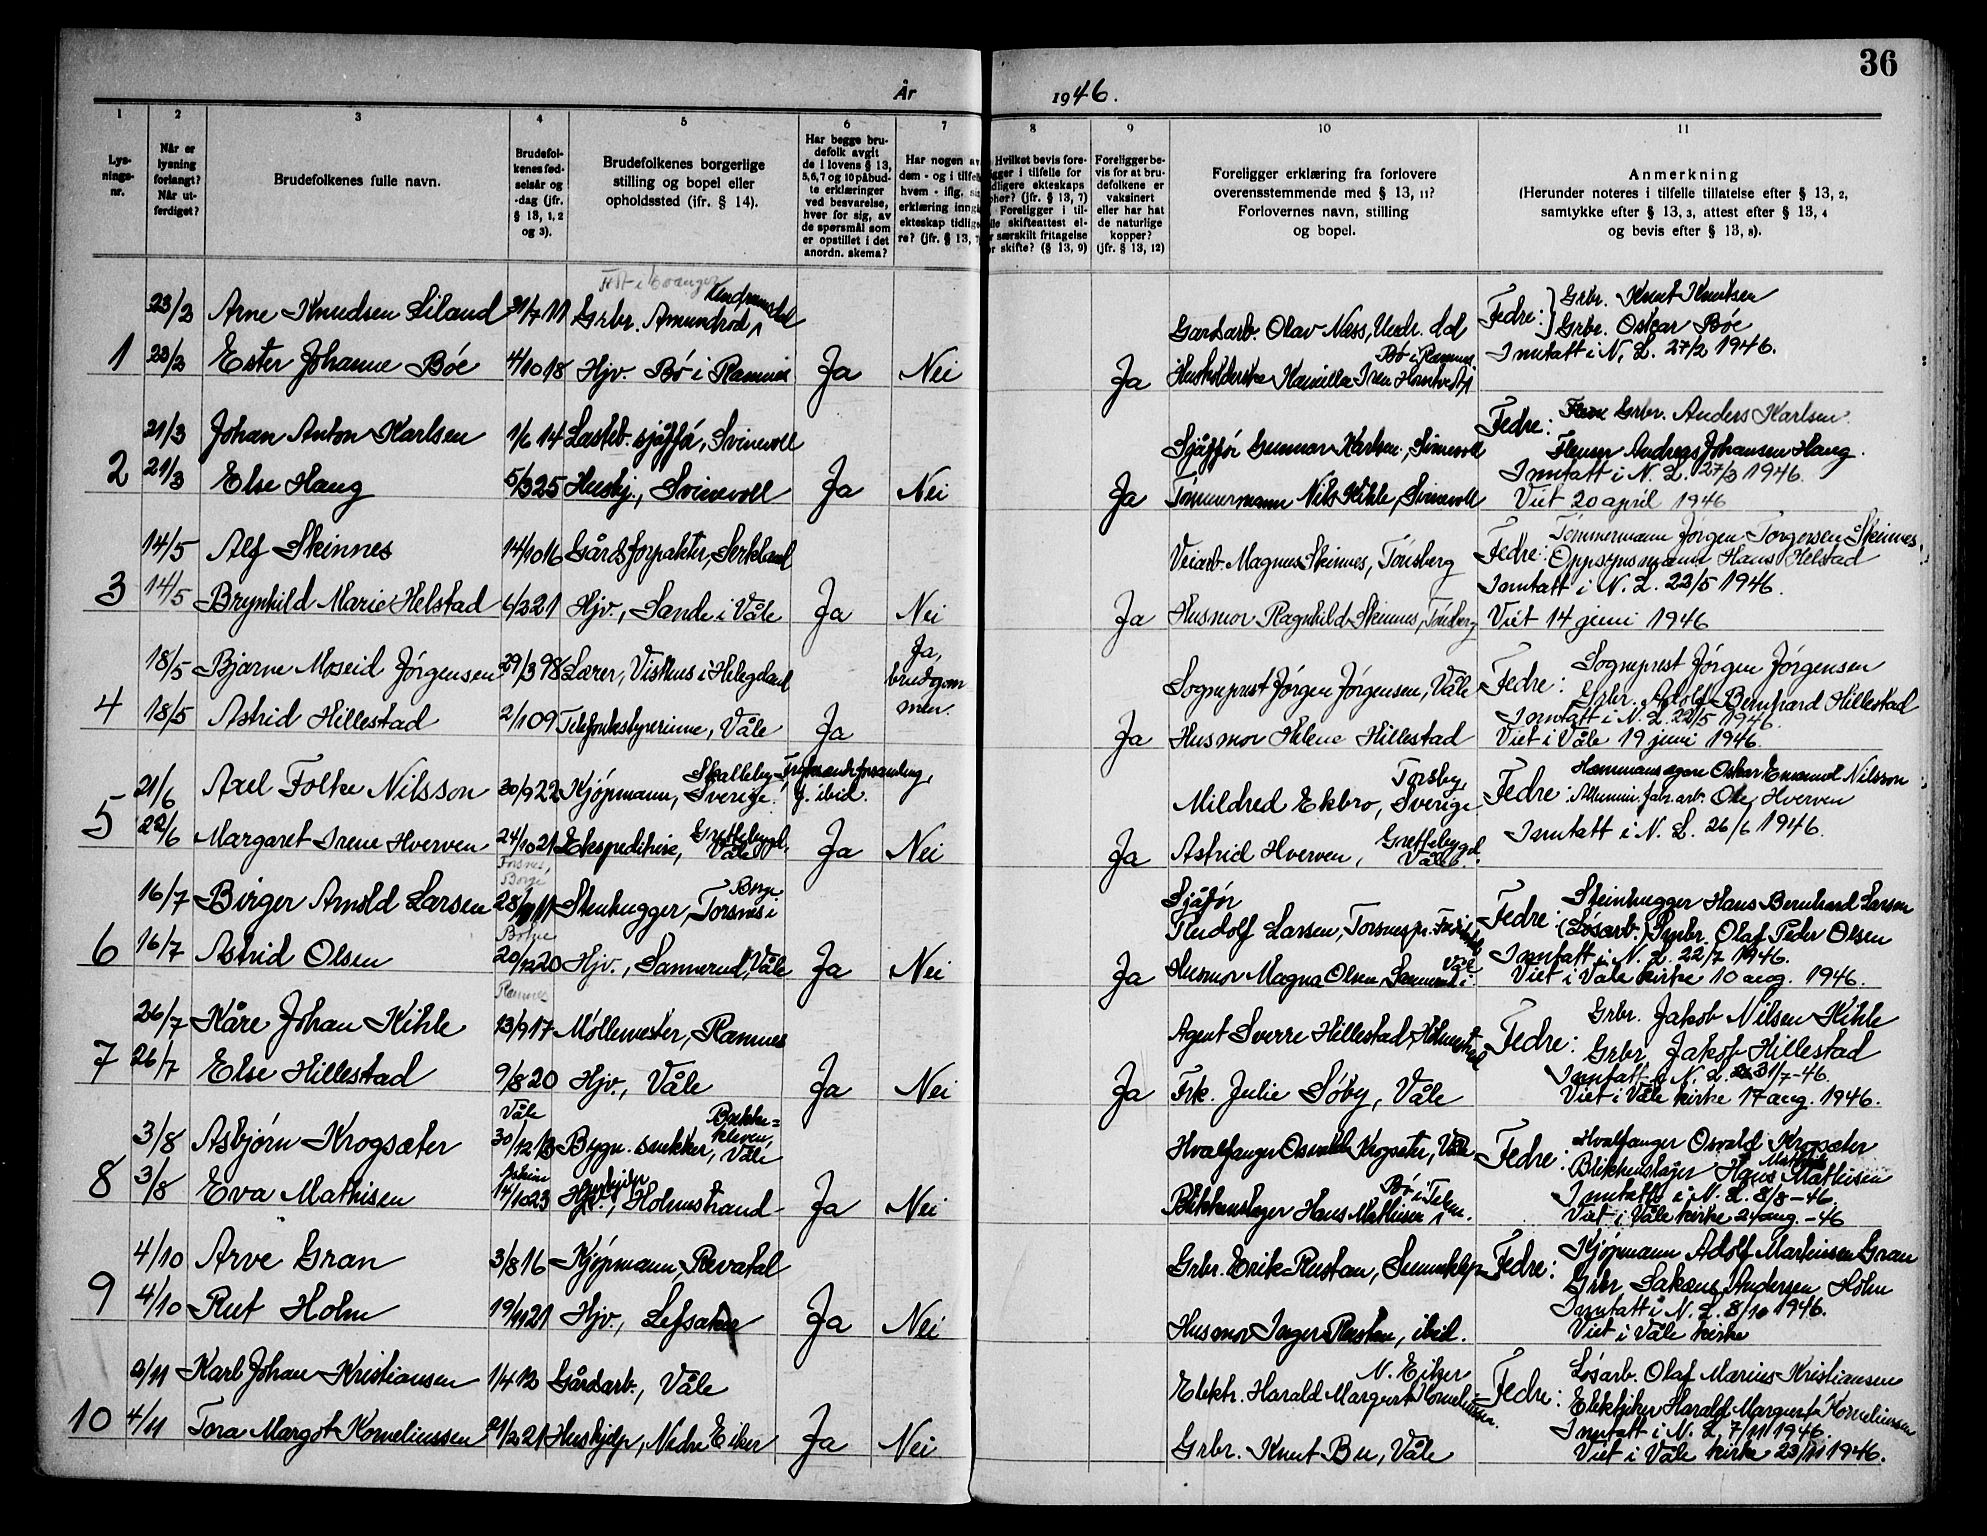 36
År 1946.
1
Lys-
nings-
nr.
2
Når er
lysning
forlangt?
Når ut-
ferdiget?
3
Brudefolkenes fulle navn.
4
Brudefol-
kenes fød-
selsår og
-dag (jfr.
§ 13, 1, 2
og 3).
5
Brudefolkenes borgerlige
stilling og bopel eller
opholdssted (ifr. § 14).
6
Har begge bru-
defolk avgit
de i lovens § 13,
5, 6, 7 og 10 påbud-
te erklæringer
ved besvarelse,
hver for sig, av
de spørsmål som
er opstillet i det
anordn. skema?
7
Har nogen av
dem - og i tilfelle
hvem - iflg. sin
erklæring inngå
ekteskap tidlige
re? (jfr. § 13, 7
8
Hvilket bevis fore-
gger i tilfelle for
dligere ekteskaps
phør? (jfr. § 13, 7)
Foreligger i til-
lle skifteattest el-
r særskilt fritagelse
or skifte? (§ 13, 9)
9
Foreligger be-
vis for at bru-
defolkene er
vaksinert
eller har hat
de naturlige
kopper?
(jfr. § 13, 12)
10
Foreligger erklæring fra forlovere
overensstemmende med § 13, 11?
Forlovernes navn, stilling
og bopel.
11
Anmerkning
(Herunder noteres i tilfelle tillatelse efter § 13, 2,
samtykke efter § 13, 3, attest efter § 13, 4
og bevis efter § 13, 8).
23/2 Arne Knudsen Liland 31/7 11 Grbr. Amundrød
Gardsarb. Olav Næss, Undr. dal
Fedre: Grbr. Knut Knutsen
Grbr. Oskar Bøe
1 23/2 Ester Johanne Bøe 4/10 18 Hjv. Bø i Ramnes Ja Nei
Ja Husholderske Kamilla Iren Bø i Ramnes
Inntatt i N. L. 27/2 1946.
21/3 Johan Anton Karlsen 1/6 14 Lasteb. sjåffør, Svinevoll
Sjåffør Gunnar Karlsen, Svinevoll
Fedre: Grbr. Anders Karlsen
Andreas Johansen Haug.
2 21/3 Else Haug 5/3 25 Hushj., Svinevoll Ja Nei
Ja Tømmermann Nils Kihle, Svinevoll
Inntatt i N. L. 27/3 1946.
Viet 20 april 1946
14/5 Alf Skinnes 14/10 16 Gårdsforpakter,
Veiarb. Magnus Skinnes, Tønsberg
Fedre: Tømmermann Jørgen Torgersen Skinnes
Oppsynsmann Hans Helstad
3 14/5 Brynhild Marie Helstad 4/3 21 Hjv., Sande i Våle Ja Nei
Ja Husmor Ragnhild Skinnes, Tønsberg
Inntatt i N. L. 23/5 1946.
Viet 14 juni 1946
18/5 Bjarne Moseid Jørgensen 29/3 98 Lærer, Visthus i Helegeland
Ja, brudgom-
men.
Sogneprest Jørgen Jørgensen, Våle
Fedre: Sogneprest Jørgen Jørgensen
Grbr. Adolf Bernhard Hillestad
4 18/5 Astrid Hillestad 2/1 09 Telefonbestyrerinne, Våle Ja
Ja Husmor Helene Hillestad
Inntatt i N. L. 22/5 1946.
Viet i Våle 19 juni 1946.
21/6 Axel Folke Nilsson 30/9 22 Kjøpmann, Sverige. ibid.
Mildred Ekbro, Torsby, Sverige
Fedre: Hemmansägare Oskar Emanuel Nilsson
Alumini. fabr. arb. Ole Hverven
5 22/6 Margaret Irene Hverven 24/10 21 Ekspeditrise, Greftebygd, Våle Ja Nei
Ja Astrid Hverven, Greftebygd. Våle.
Inntatt i N. L. 26/6 1946.
Torsnes, Borge
16/7 Birger Arnold Larsen Stenhugger, Torsnes i Borge
Sjåfør
Rudolf Larsen, Torsnes pr.
Fedre: Steinhugger Hans Bernhard Larsen
(Løsarb.) Olaf Peder Olsen
6 16/7 Astrid Olsen 20/12 20 Hjv., Sannerud, Våle Ja Nei
Ja Husmor Magna Olsen, Sannerud i Våle
Inntatt i N. L. 22/7 1946.
Viet i Våle kirke 10 aug. 1946.
Ramnes
26/7 Kåre Johan Kihle 13/9 17 Møllemester, Ramnes
Agent Sverre Hillestad, Holmestrand
Fedre: Grbr. Jakob Nilsen Kihle
Grbr. Jakob Hillestad
7 26/7 Else Hillestad 9/8 20 Hjv., Våle Ja Nei
Ja Frk. Julie Søby, Våle
Inntatt i N. L. 31/7-46.
Viet i Våle kirke 17 aug. 1946.
Våle
3/8 Asbjørn Krogsæter 30/12 13 Bygn. snekker, Bakke-
kleven, Våle
Hvalfanger Osvald Krogsæter, Våle
Fedre: Hvalfanger Osvald Krogsæter
Blikkenslager Hans Mathisen
8 3/8 Eva Mathisen 14/10 23 Holmestrand Ja Nei
Blikkenslager Hans Mathisen Bø i Telem.
Inntatt i N. L. 8/8-46.
Viet i Våle kirke 24 aug. -46
4/10 Arve Gran 3/8 16 Kjøpmann, Revatal
Grbr. Erik Rustan,
Fedre: Kjøpmann Adolf Martinsen Gran
Grbr. Sakæus Andersen Holm
9 4/10 Rut Holm 19/11 21 Hjv., Lefsaker Ja Nei
Husmor Inger Rustan, ibid.
Inntatt i N. L. 8/10 1946.
Viet i Våle kirke
2/11 Karl Johan Kristiansen 1/4 12 Gårdarb., Våle
Elektr. Harald Margent Korneliussen N. Eiker
Fedre: Løsarb. Olaf Marius Kristiansen
Elektriker Harald Margent Korneliussen
10 4/11 Tora Margot Korneliussen 21/2 21 Hushjelp, Nedre Eiker Ja Nei
Grbr. Knut Bu, Våle
Inntatt i N. L. 7/11 1946.
Viet i Våle kirke 23/11 1946.